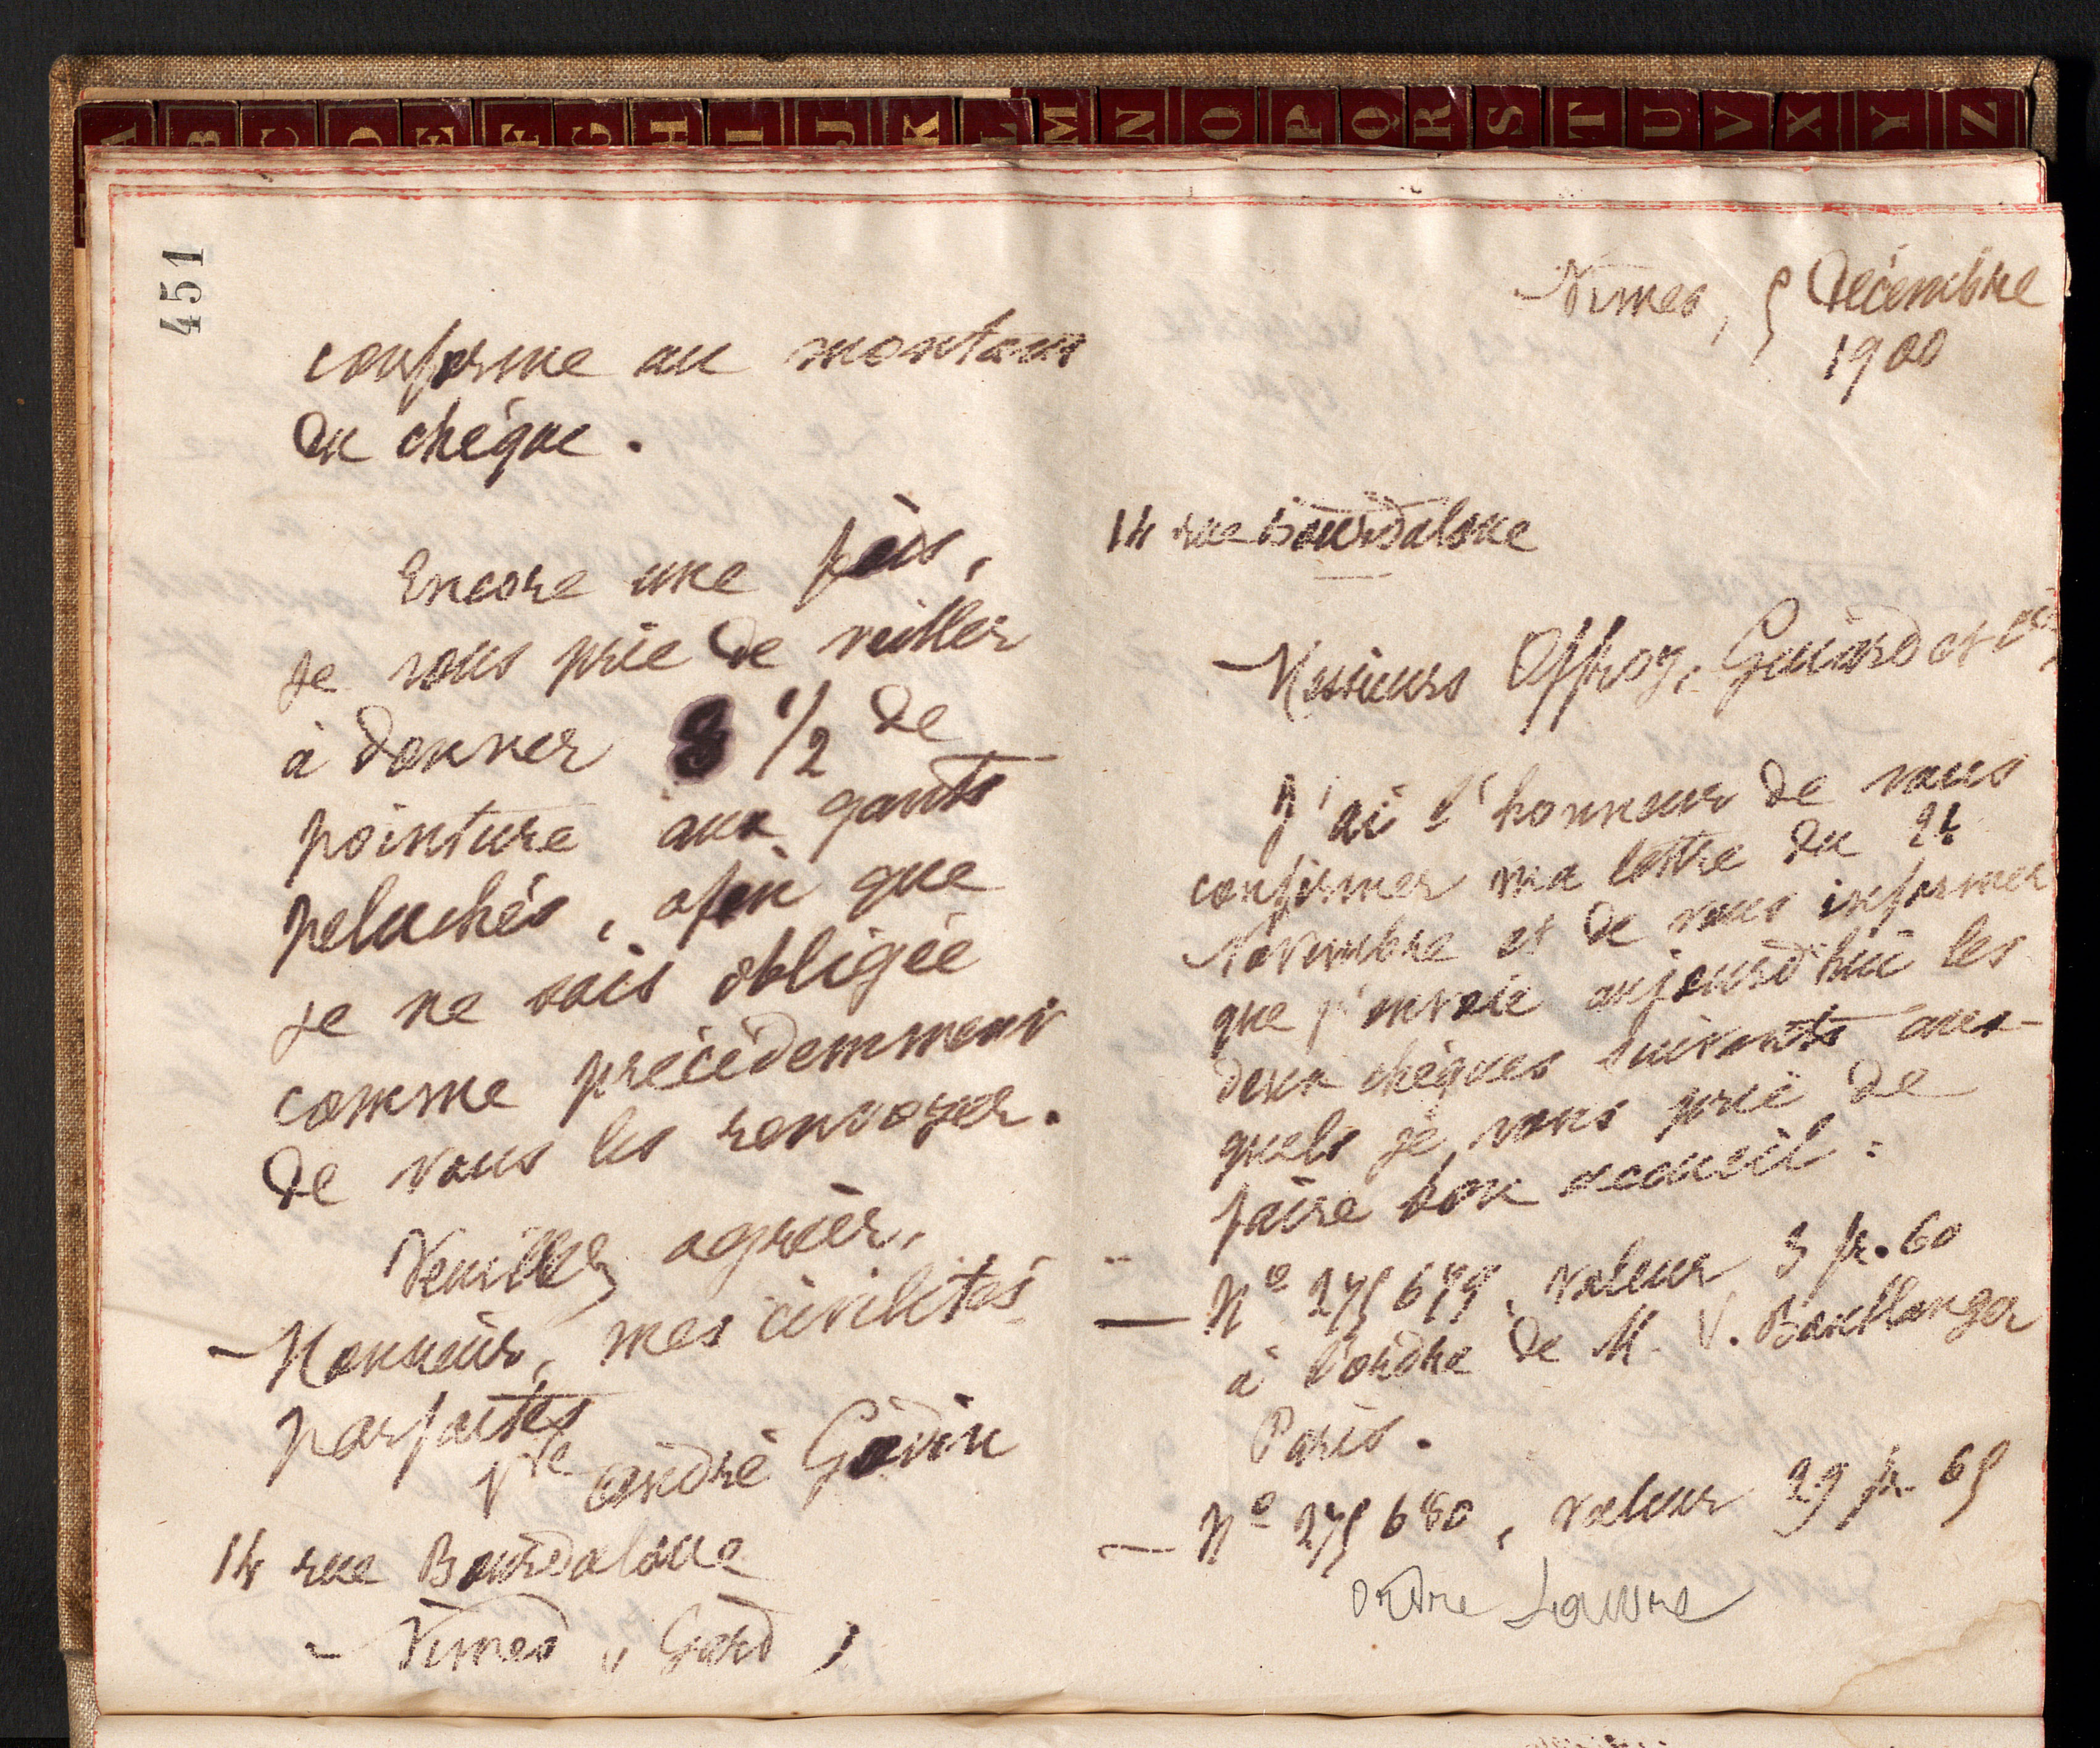 A B C D E F G H I J K L M N O P Q R S T U V X Y Z
451
conforme au montant
du chèque.
Encore une fois,
je vous prie de veiller
à donner 8 1/2 de
pointure aux gants
peluchés, afin que
je ne sois obligée
comme précédemment
de vous les renvoyer.
Veuillez agréer,
Monsieur, mes civilités
parfaites
Vve André Godin
14 rue Bourdaloue
Nimes (Gard)
Nimes, 5 Décembre
1900
14 rue Bourdaloue
Messieurs Offroy, Guiard et Cie,
J'ai l'honneur de vous
confirmer ma lettre du 24
Novembre et de vous informer
que j'envoie aujourd'hui les
deux chèques suivants aux-
quels je vous prie de
faire bon accueil :
— N° 275 679, valeur 3 fr. 60
à l'ordre de M. V. Boullanger
Paris.
— N° 275 680, valeur 29 fr. 65
ordre Louvre